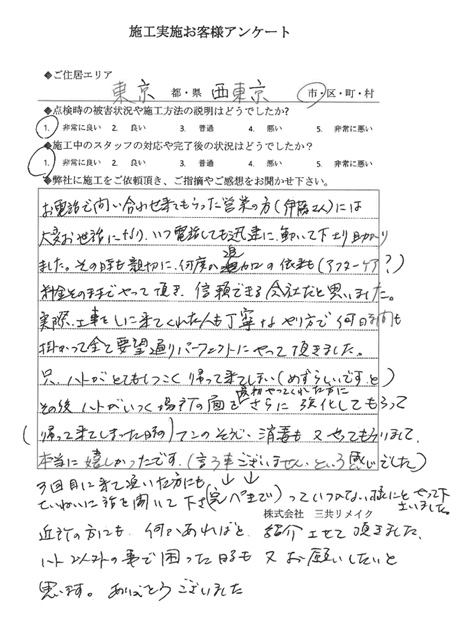 施工実施お客様アンケート
◆ご住居エリア
東京 都・県 西東京 市・区・町・村
◆点検時の被害状況や施工方法の説明はどうでしたか?
1. 非常に良い 2. 良い 3. 普通 4. 悪い 5. 非常に悪い
◆施工中のスタッフの対応や完了後の状況はどうでしたか?
1. 非常に良い 2. 良い 3. 普通 4. 悪い 5. 非常に悪い
◆弊社に施工をご依頼頂き、ご指摘やご感想をお聞かせ下さい。
お電話で問い合わせ来てもらった営業の方(伊藤さん)には
大変お世話になり、いつ電話しても迅速に、動いて下さり助かり
ました。その時も親切に、何度の追加の依頼も(アフターケア?)
料金そのままでやって頂き、信頼できる会社だと思いました。
実際、工事をしに来てくれた人も丁寧なやり方で何日時間も
掛かって全て要望通りパーフェクトにやって頂きました。
只、ハトがとてもしつこく帰って来てしまい(めずらしいですと)
最初やってくれた方に
その後ハトがいつく場所の面をさらに強化してもらって
(帰って来てしまった時の)フンのそうじ、消毒も又やってもらいまして、
本当に嬉しかったです。(言う事ございません、という感じでした)
3回目に来て頂いた方にも
ていねいに話を聞いて下さ(完ペキまで)っていつかない様にとやって下さいました。
株式会社 三共リメイク
近所の方にも、何かあればと、紹介させて頂きました。
ハト以外の事で困った時も又お願いしたいと
思います。ありがとうございました